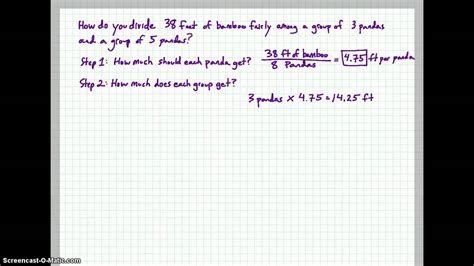 How do you divide 38 feet of bamboo fairly among a group of 3 pandas
and a group of 5 pandas?
Step 1: How much should each panda get? 38 ft of bamboo / 8 Pandas = 4.75 ft per panda
Step 2: How much does each group get?
3 pandas x 4.75 = 14.25 ft
Screencast-O-Matic.com